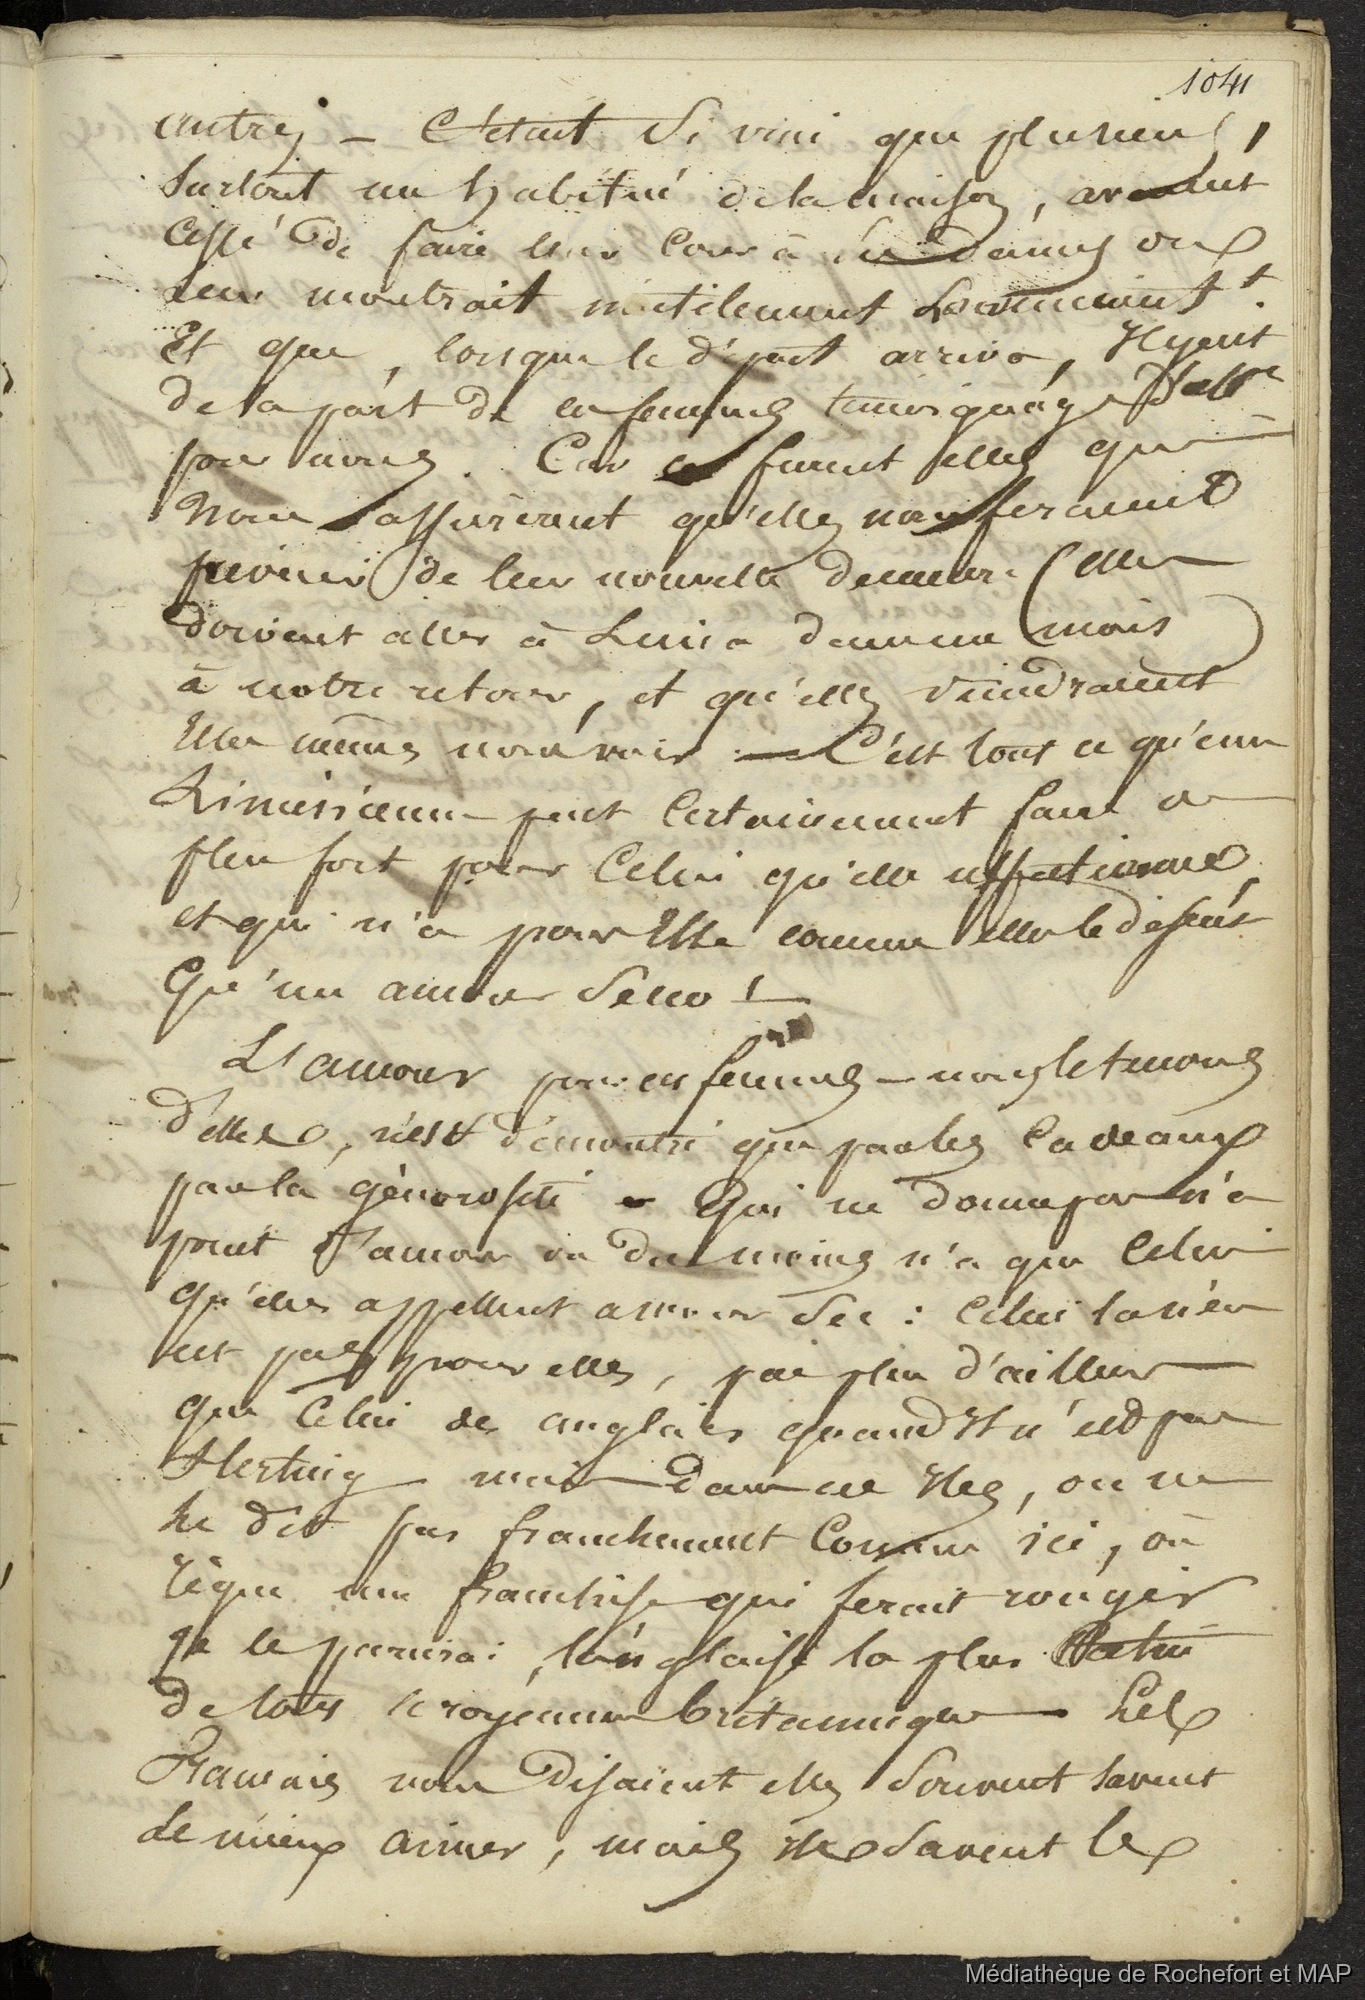 1041
autres — C'était si vrai que plusieurs,
surtout un habitué de la maison, avaient
cessé de faire leur cour à ces dames ou
leur montrait inutilement
Et que, lorsque le départ arriva, Il y eut
de la part de ces femmes
pour nous. Car ce furent elles qui
nous assurèrent qu'elles nous feraient
prévenir de leur nouvelle demeure (elles
doivent aller à Lima dans un mois)
à notre retour, et qu'elles viendraient
Elles mêmes nous voir — C'est tout ce qu'une
Liménienne peut certainement faire de
plus fort pour celui qu'elle affectionne,
et qui n'a pour Elle comme elle le disent
Qu'un amour seco !—
L'amour pour ces femmes — nous le tenons
d'elles, n'est démontré que par les cadeaux
par la génerosité — Qui ne donne pas n'a
point d'amour ou du moins n'a que celui
qu'elles appellent amour sec : celui là n'en
est pas pour elles, pas plus d'ailleurs
que celui des anglais quand Il n'est pas
Sterling — mais dans ces Iles, on ne
le dit pas franchement comme ici, où
règne une franchise qui ferait rougir
je le parierai, l'anglaise la plus
de tout le royaume britannique — Les
Français nous disaient elles souvent savent
le mieux aimer, mais Ils savent le
Médiathèque de Rochefort et MAP